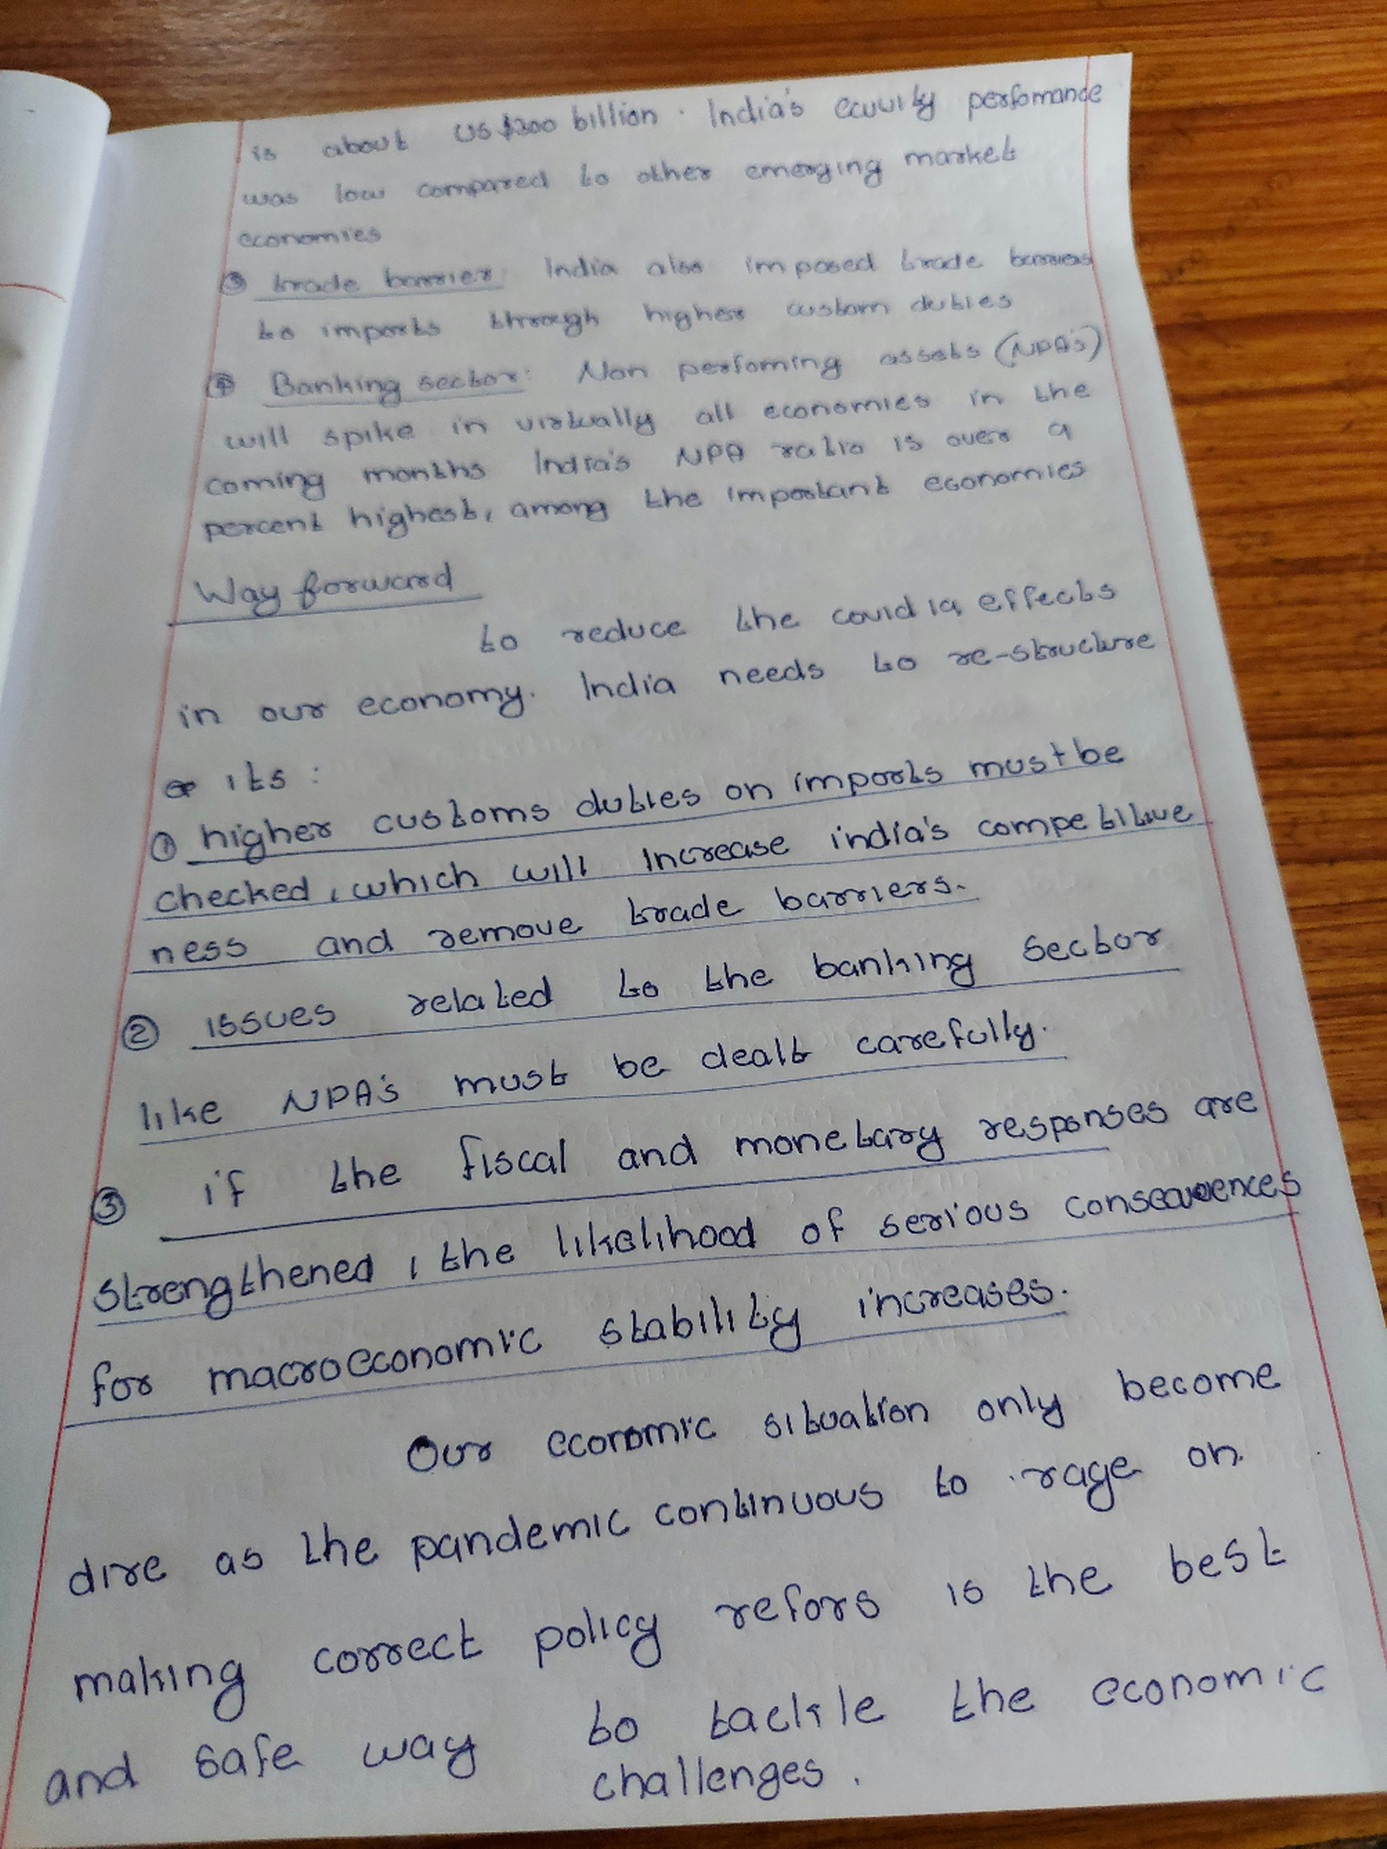 is about US $300 billion. India's ecuuity perfomande
was low compared to other emerging market
economies
③ trade barrier: India also imposed trade barriers
to imports through higher custom duties
④ Banking sector: Non perfoming assets (NPA's)
will spike in virtually all economies in the
coming months India's NPA ratio is over 9
percent highest, among the important economies
Way forward
to reduce the covid 19 effects
in our economy. India needs to re-structure
its :
① higher customs duties on imports must be
checked, which will increase india's competitive
ness and remove trade barriers.
② issues related to the banking sector
like NPA's must be dealt carefully.
③ if the fiscal and monetary responses are
strengthened, the likelihood of serious consequences
for macroeconomic stability increases.
Our economic situation only become
dire as the pandemic continuous to rage on.
making correct policy refors is the best
and safe way to tackle the economic
challenges.